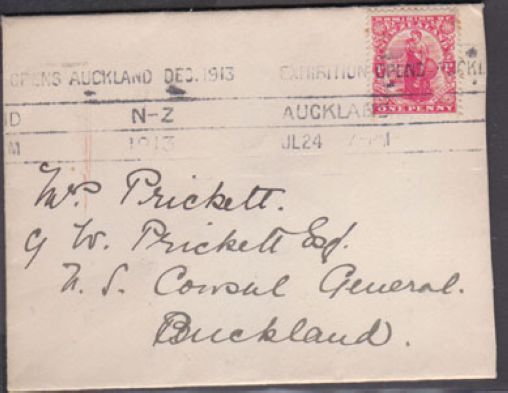 OPENS AUCKLAND DEC. 1913 EXHIBITION OPENS AUCKL
ND N-Z AUCKLAND
M 1913 JL24 PM
ONE PENNY
Mrs Prickett.
G W. Prickett Esq.
U. S. Consul General.
Auckland.